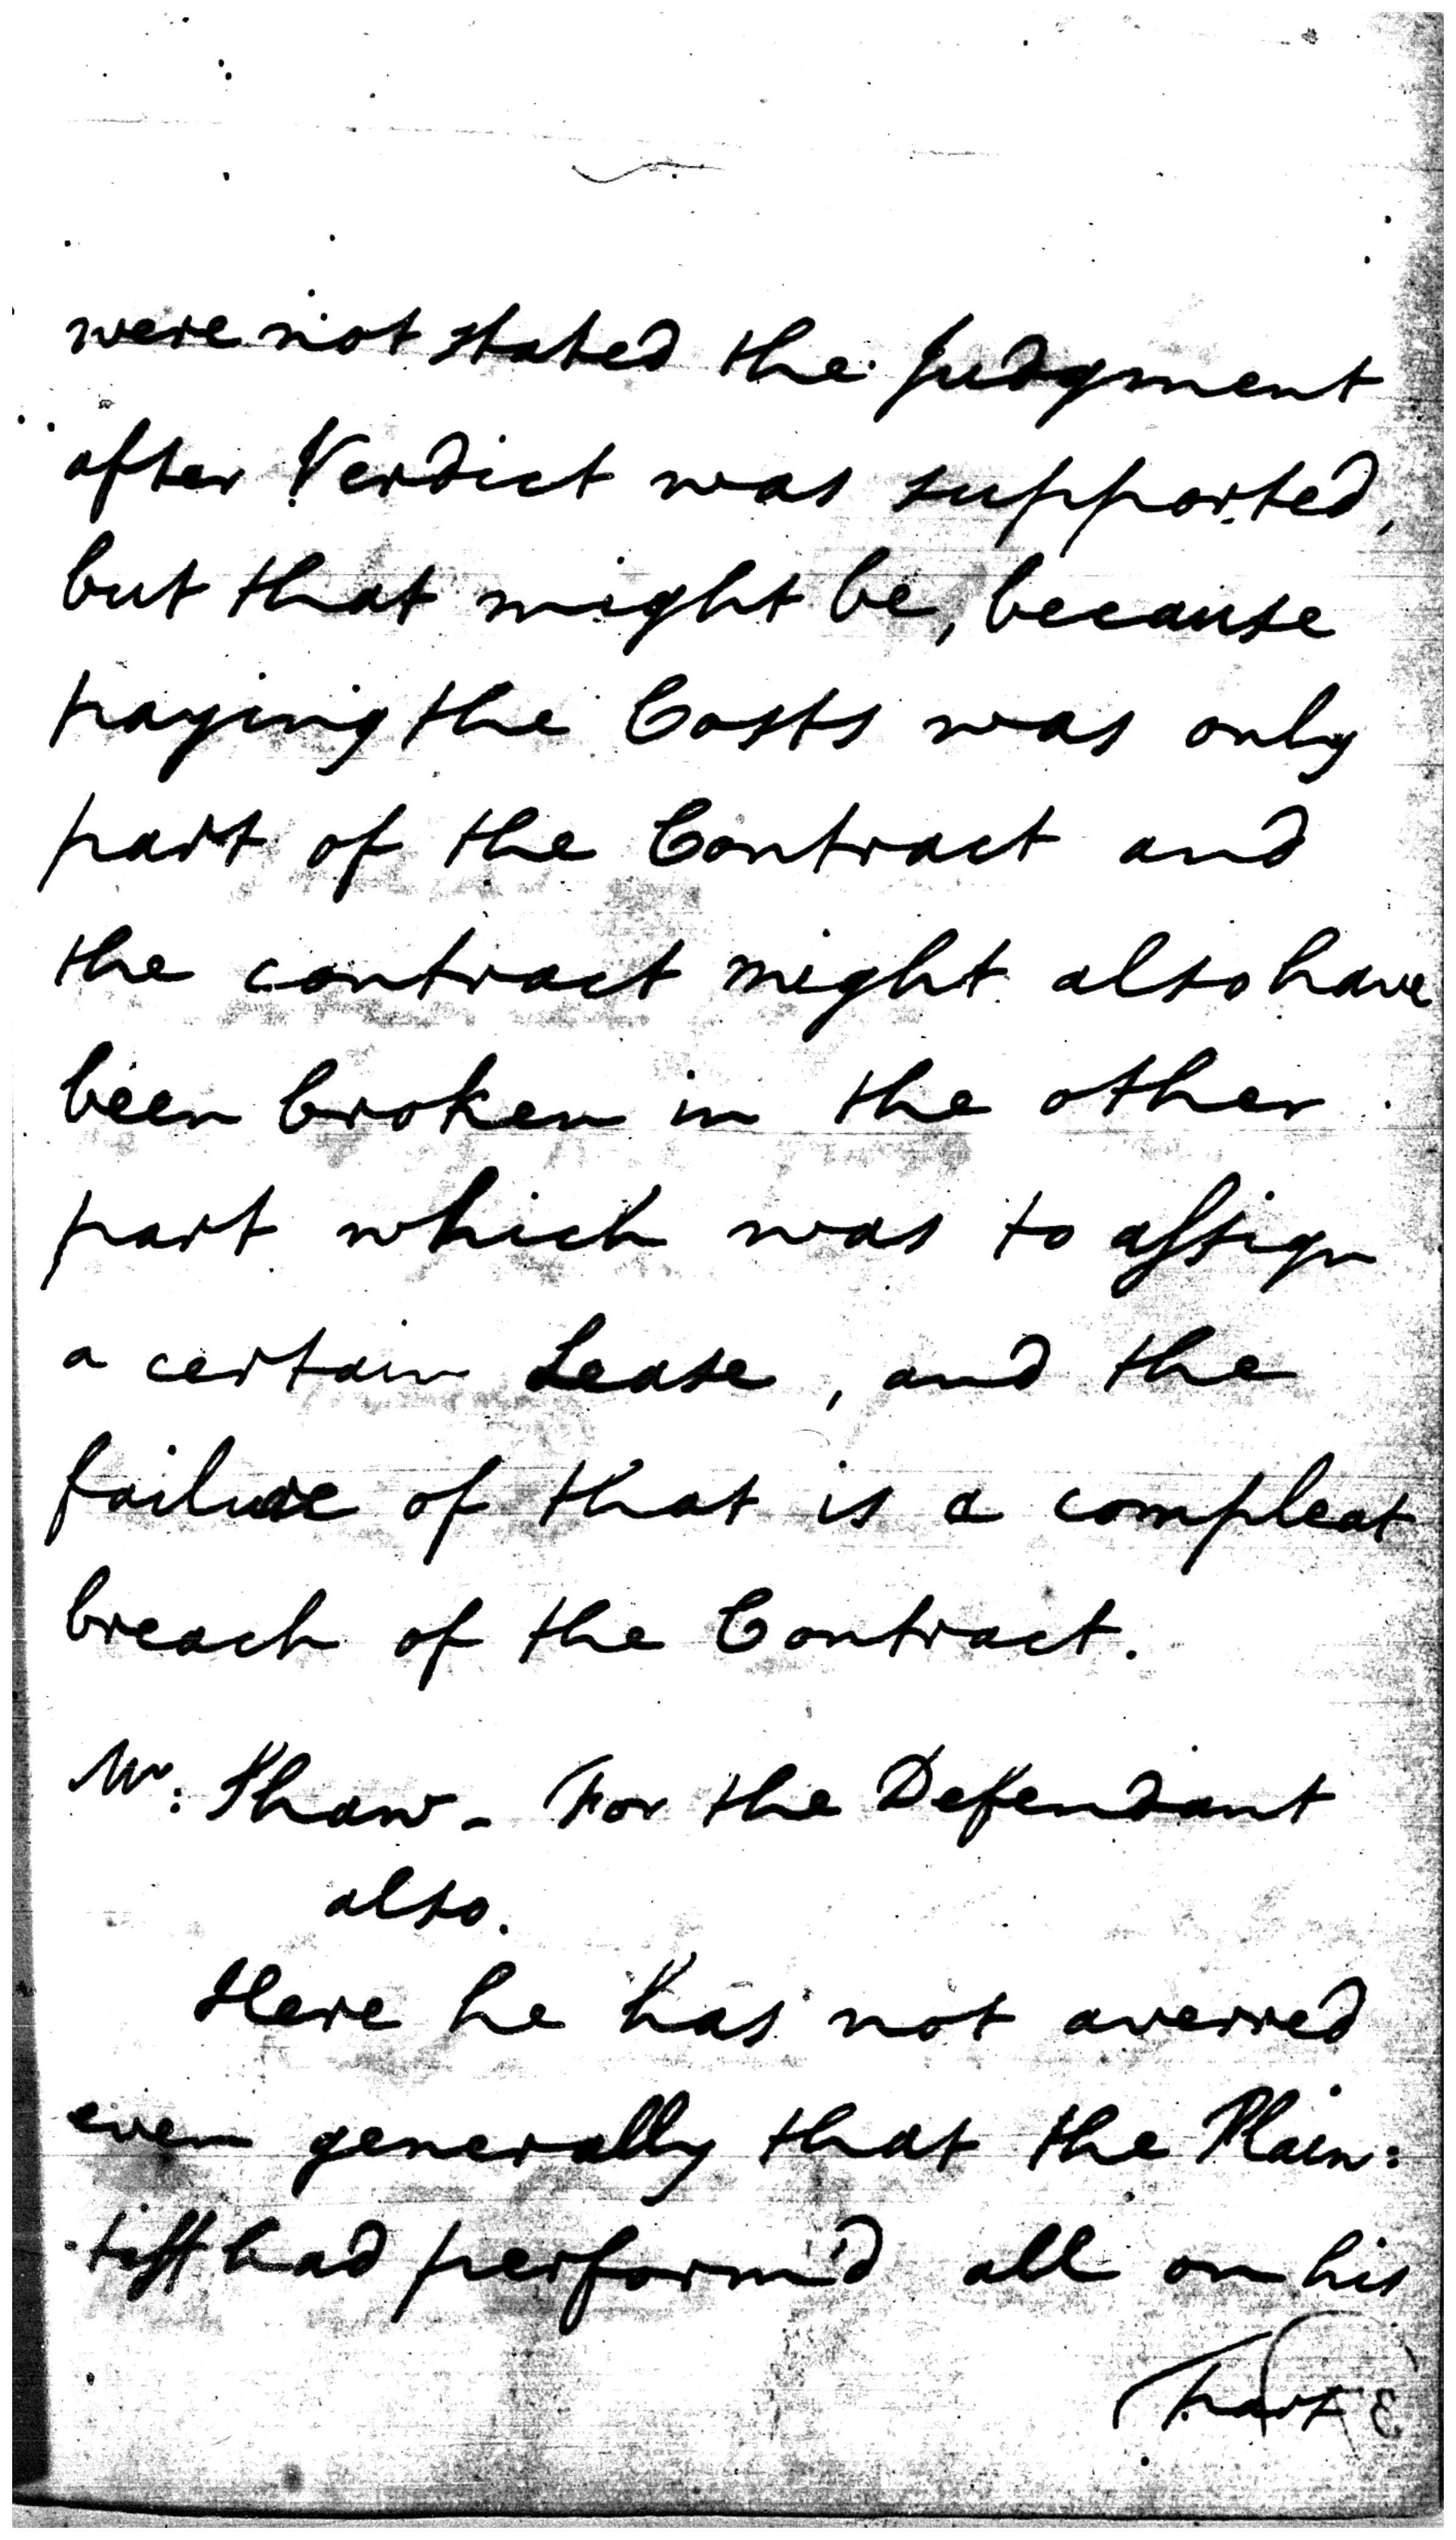 were not stated the Judgment
after Verdict was supported,
but that might be, because
paying the Costs was only
part of the Contract and
the contract might also have
been broken in the other
part which was to aſsign
a certain Lease, and the
failure of that is a compleat
breach of the Contract.
Mr: Shaw - For the Defendant
also.
Here he has not averred
even generally that the Plain:
tiff had perform'd all on his
part